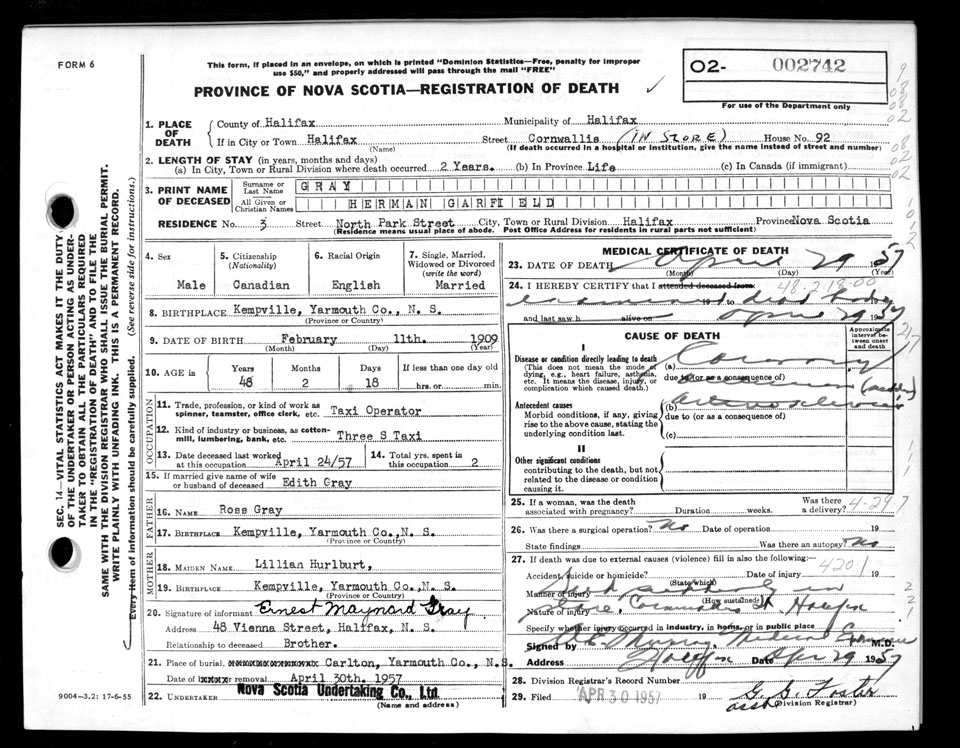 FORM 6
This form, if placed in an envelope, on which is printed "Dominion Statistics—Free, penalty for improper
use $50," and properly addressed will pass through the mail "FREE"
PROVINCE OF NOVA SCOTIA—REGISTRATION OF DEATH
O2- 002742
For use of the Department only
SEC. 14—VITAL STATISTICS ACT MAKES IT THE DUTY
OF THE UNDERTAKER OR PERSON ACTING AS UNDER-
TAKER TO OBTAIN ALL THE PARTICULARS REQUIRED
IN THE "REGISTRATION OF DEATH" AND TO FILE THE
SAME WITH THE DIVISION REGISTRAR WHO SHALL ISSUE THE BURIAL PERMIT.
WRITE PLAINLY WITH UNFADING INK. THIS IS A PERMANENT RECORD.
Every item of information should be carefully supplied. (See reverse side for instructions.)
1. PLACE OF DEATH
County of Halifax Municipality of Halifax
If in City or Town Halifax Street Cornwallis (IN STORE) House No. 92
(Name) (If death occurred in a hospital or institution, give the name instead of street and number)
2. LENGTH OF STAY (in years, months and days)
(a) In City, Town or Rural Division where death occurred 2 Years. (b) In Province Life (c) In Canada (if immigrant)
3. PRINT NAME OF DECEASED
Surname or Last Name GRAY
All Given or Christian Names HERMAN GARFIELD
RESIDENCE No. 3 Street North Park Street City, Town or Rural Division Halifax Province Nova Scotia
(Residence means usual place of abode. Post Office Address for residents in rural parts not sufficient)
4. Sex
Male
5. Citizenship
(Nationality)
Canadian
6. Racial Origin
English
7. Single, Married, Widowed or Divorced
(write the word)
Married
8. BIRTHPLACE Kempville, Yarmouth Co., N. S.
(Province or Country)
9. DATE OF BIRTH February 11th. 1909
(Month) (Day) (Year)
10. AGE in Years Months Days If less than one day old
48 2 18 hrs. or min.
OCCUPATION
11. Trade, profession, or kind of work as
spinner, teamster, office clerk, etc. Taxi Operator
12. Kind of industry or business, as cotton-
mill, lumbering, bank, etc. Three S Taxi
13. Date deceased last worked
at this occupation April 24/57
14. Total yrs. spent in
this occupation 2
15. If married give name of wife
or husband of deceased Edith Gray
FATHER
16. NAME Ross Gray
17. BIRTHPLACE Kempville, Yarmouth Co., N. S.
(Province or Country)
MOTHER
18. MAIDEN NAME Lillian Hurlburt,
19. BIRTHPLACE Kempville, Yarmouth Co., N.S.
(Province or Country)
20. Signature of informant Ernest Maynard Gray
Address 48 Vienna Street, Halifax, N. S.
Relationship to deceased Brother.
21. Place of burial, Carlton, Yarmouth Co., N.S.
Date of or removal April 30th. 1957
22. UNDERTAKER Nova Scotia Undertaking Co., Ltd.
(Name and address)
9004-3.2: 17-6-55
MEDICAL CERTIFICATE OF DEATH
23. DATE OF DEATH April 29 1957
(Month) (Day) (Year)
24. I HEREBY CERTIFY that I attended deceased from: 48-2-18-00
examined 19 to dead body
and last saw h alive on April 29 1957
CAUSE OF DEATH
Approximate interval between onset and death
I
Disease or condition directly leading to death
(This does not mean the mode of
dying, e.g., heart failure, asthenia,
etc. It means the disease, injury, or
complication which caused death.)
(a) Coronary
due to (or as a consequence of)
Antecedent causes
Morbid conditions, if any, giving
rise to the above cause, stating the
underlying condition last.
(b) Arteriosclerosis
due to (or as a consequence of)
(c)
II
Other significant conditions
contributing to the death, but not
related to the disease or condition
causing it.
25. If a woman, was the death
associated with pregnancy? Duration weeks. Was there a delivery?
4-29-7
26. Was there a surgical operation? No Date of operation 19
State findings Was there an autopsy? No
27. If death was due to external causes (violence) fill in also the following:
4201
Accident, suicide or homicide? Date of injury 19
(State which)
Manner of injury
(How sustained)
Nature of injury Store, Cornwallis St. Halifax
Specify whether injury occurred in industry, in home, or in public place
Signed by Murray Medical Examiner M.D.
Address Halifax Date Apr 29 1957
28. Division Registrar's Record Number
29. Filed APR 30 1957 19 G. S. Foster
asst (Division Registrar)